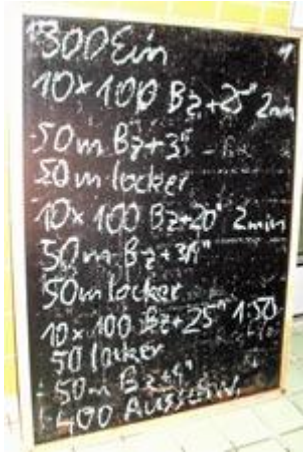 300 Ein
10x100 Bz+25" 2min
50m Bz+3"
50m locker
10x100 Bz+20" 2min
50m Bz+3"
50m locker
10x100 Bz+25" 1:50
50 locker
50m Bz+4"
400 Ausschw.